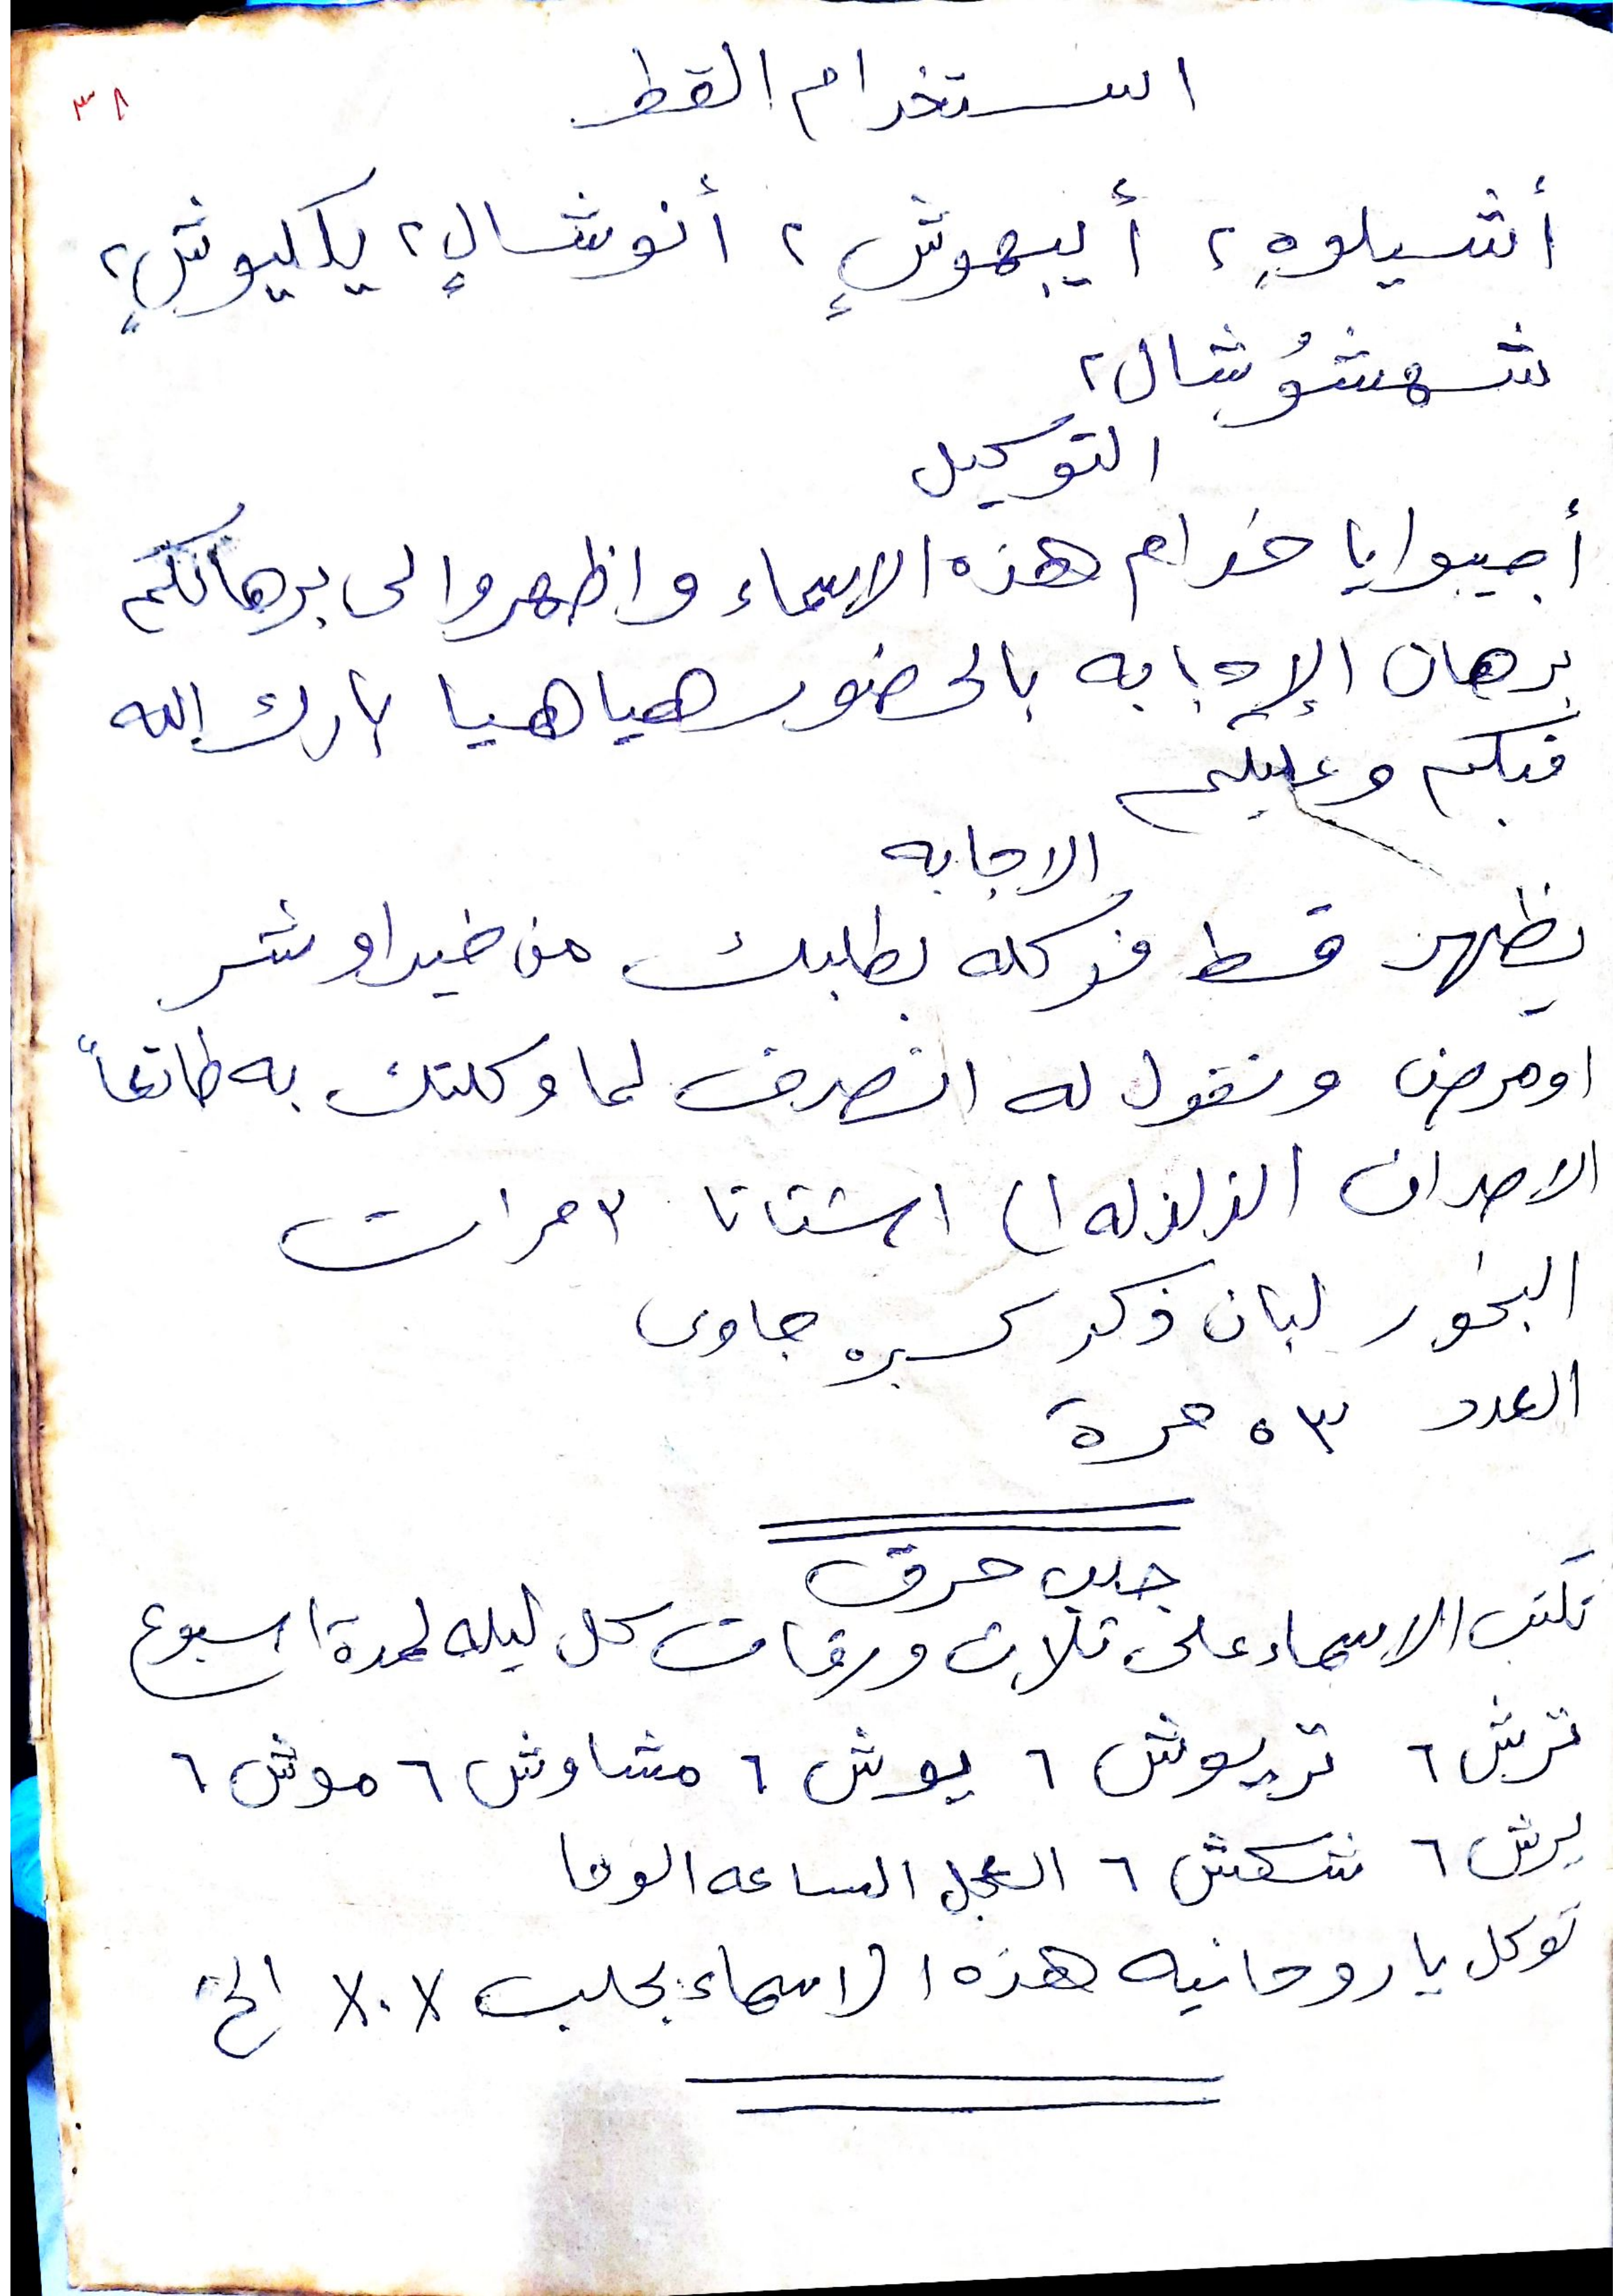 ٣٨
استخدام القط
أشيلوهٍ ٢ أيبهوشٍ ٢ أنوشالٍ ٢ يكليوشٍ ٢
شهشوُشال ٢
التوكيل
أجيبوا يا خدام هذه الاسماء واظهروا لى برهانكم
برهان الإجابه بالحضور هيا هيا بارك الله
فيكم وعليكم
الاجابه
يظهر قط فوكله بطلبك من خير او شر
او مرض ونقول له انصرف لما وكلتك به طائعاً
الزلزله اشتاتا ٣ مرات
البخور لبان ذكر كسبره جاوى
العدد ٥٣ مرة
جلب حرق
تكتب الاسماء على ثلاث ورقات كل ليله لمدة اسبوع
ترش ٦ تريوش ٦ يوش ٦ مشاوش ٦ موش ٦
يرش ٦ شكش ٦ العجل الساعه الوحا
توكل يا روحانيه هذه الاسماء بجلب الخ